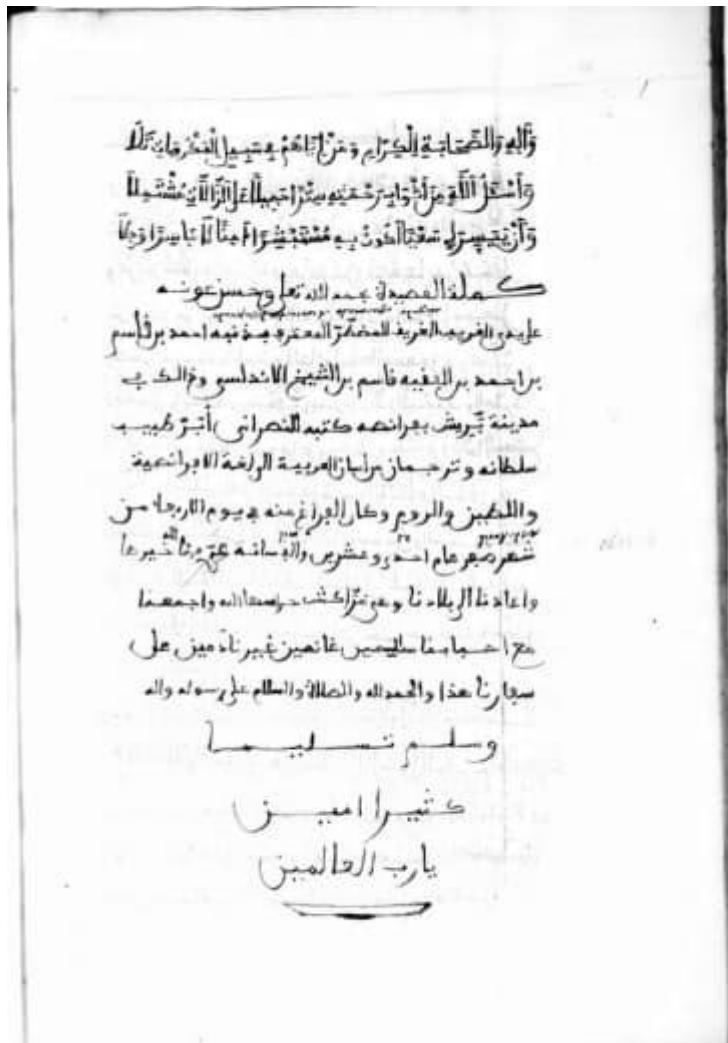 وَءَالِهِ وَالصَّحَابَةِ الْكِرَامِ وَمَنْ تَلَاهُمْ فِي سَبِيلِ
وَأَسْئَلُ اللَّهَ مِنْ رَحْمَتِهِ سِتْرًا جَمِيلًا عَلَى الزَّلَّاتِ مُشْتَمِلَا
وَأَنْ يُيَسِّرَ لِي سَعْيًا أَكُونُ بِهِ مُسْتَبْشِرًا ءَامِنًا لَا بَاسِرًا وَجِلَا
كملة القصيدة بحمد الله تعلى وحسن عونه
على يدي الغريب الغريق المعترف بذنبه احمد بن قاسم
بن احمد بن الفقيه قاسم بن الشيخ الاندلسي وذالك في
مدينة بَرِيش بفرانصه كتبه للنصراني أُبَرْت طبيب
سلطانه وترجمان من لسان العربية الى لغة الافرانصية
واللطين والروم وكان الفراغ منه في يوم الاربعا من
شهر صفر عام احدى وعشرين والف سانة عرفنا الله خيرها
واعادنا الى بلادنا وهي مرّاكش حرسها الله واجمعنا
مع احبابنا سالمين غانمين غير نادمين على
سفارنا هذا والحمد لله والصلاة والسلام على رسوله واله
وسلم تسليما
كثيرا امين
يا رب العالمين